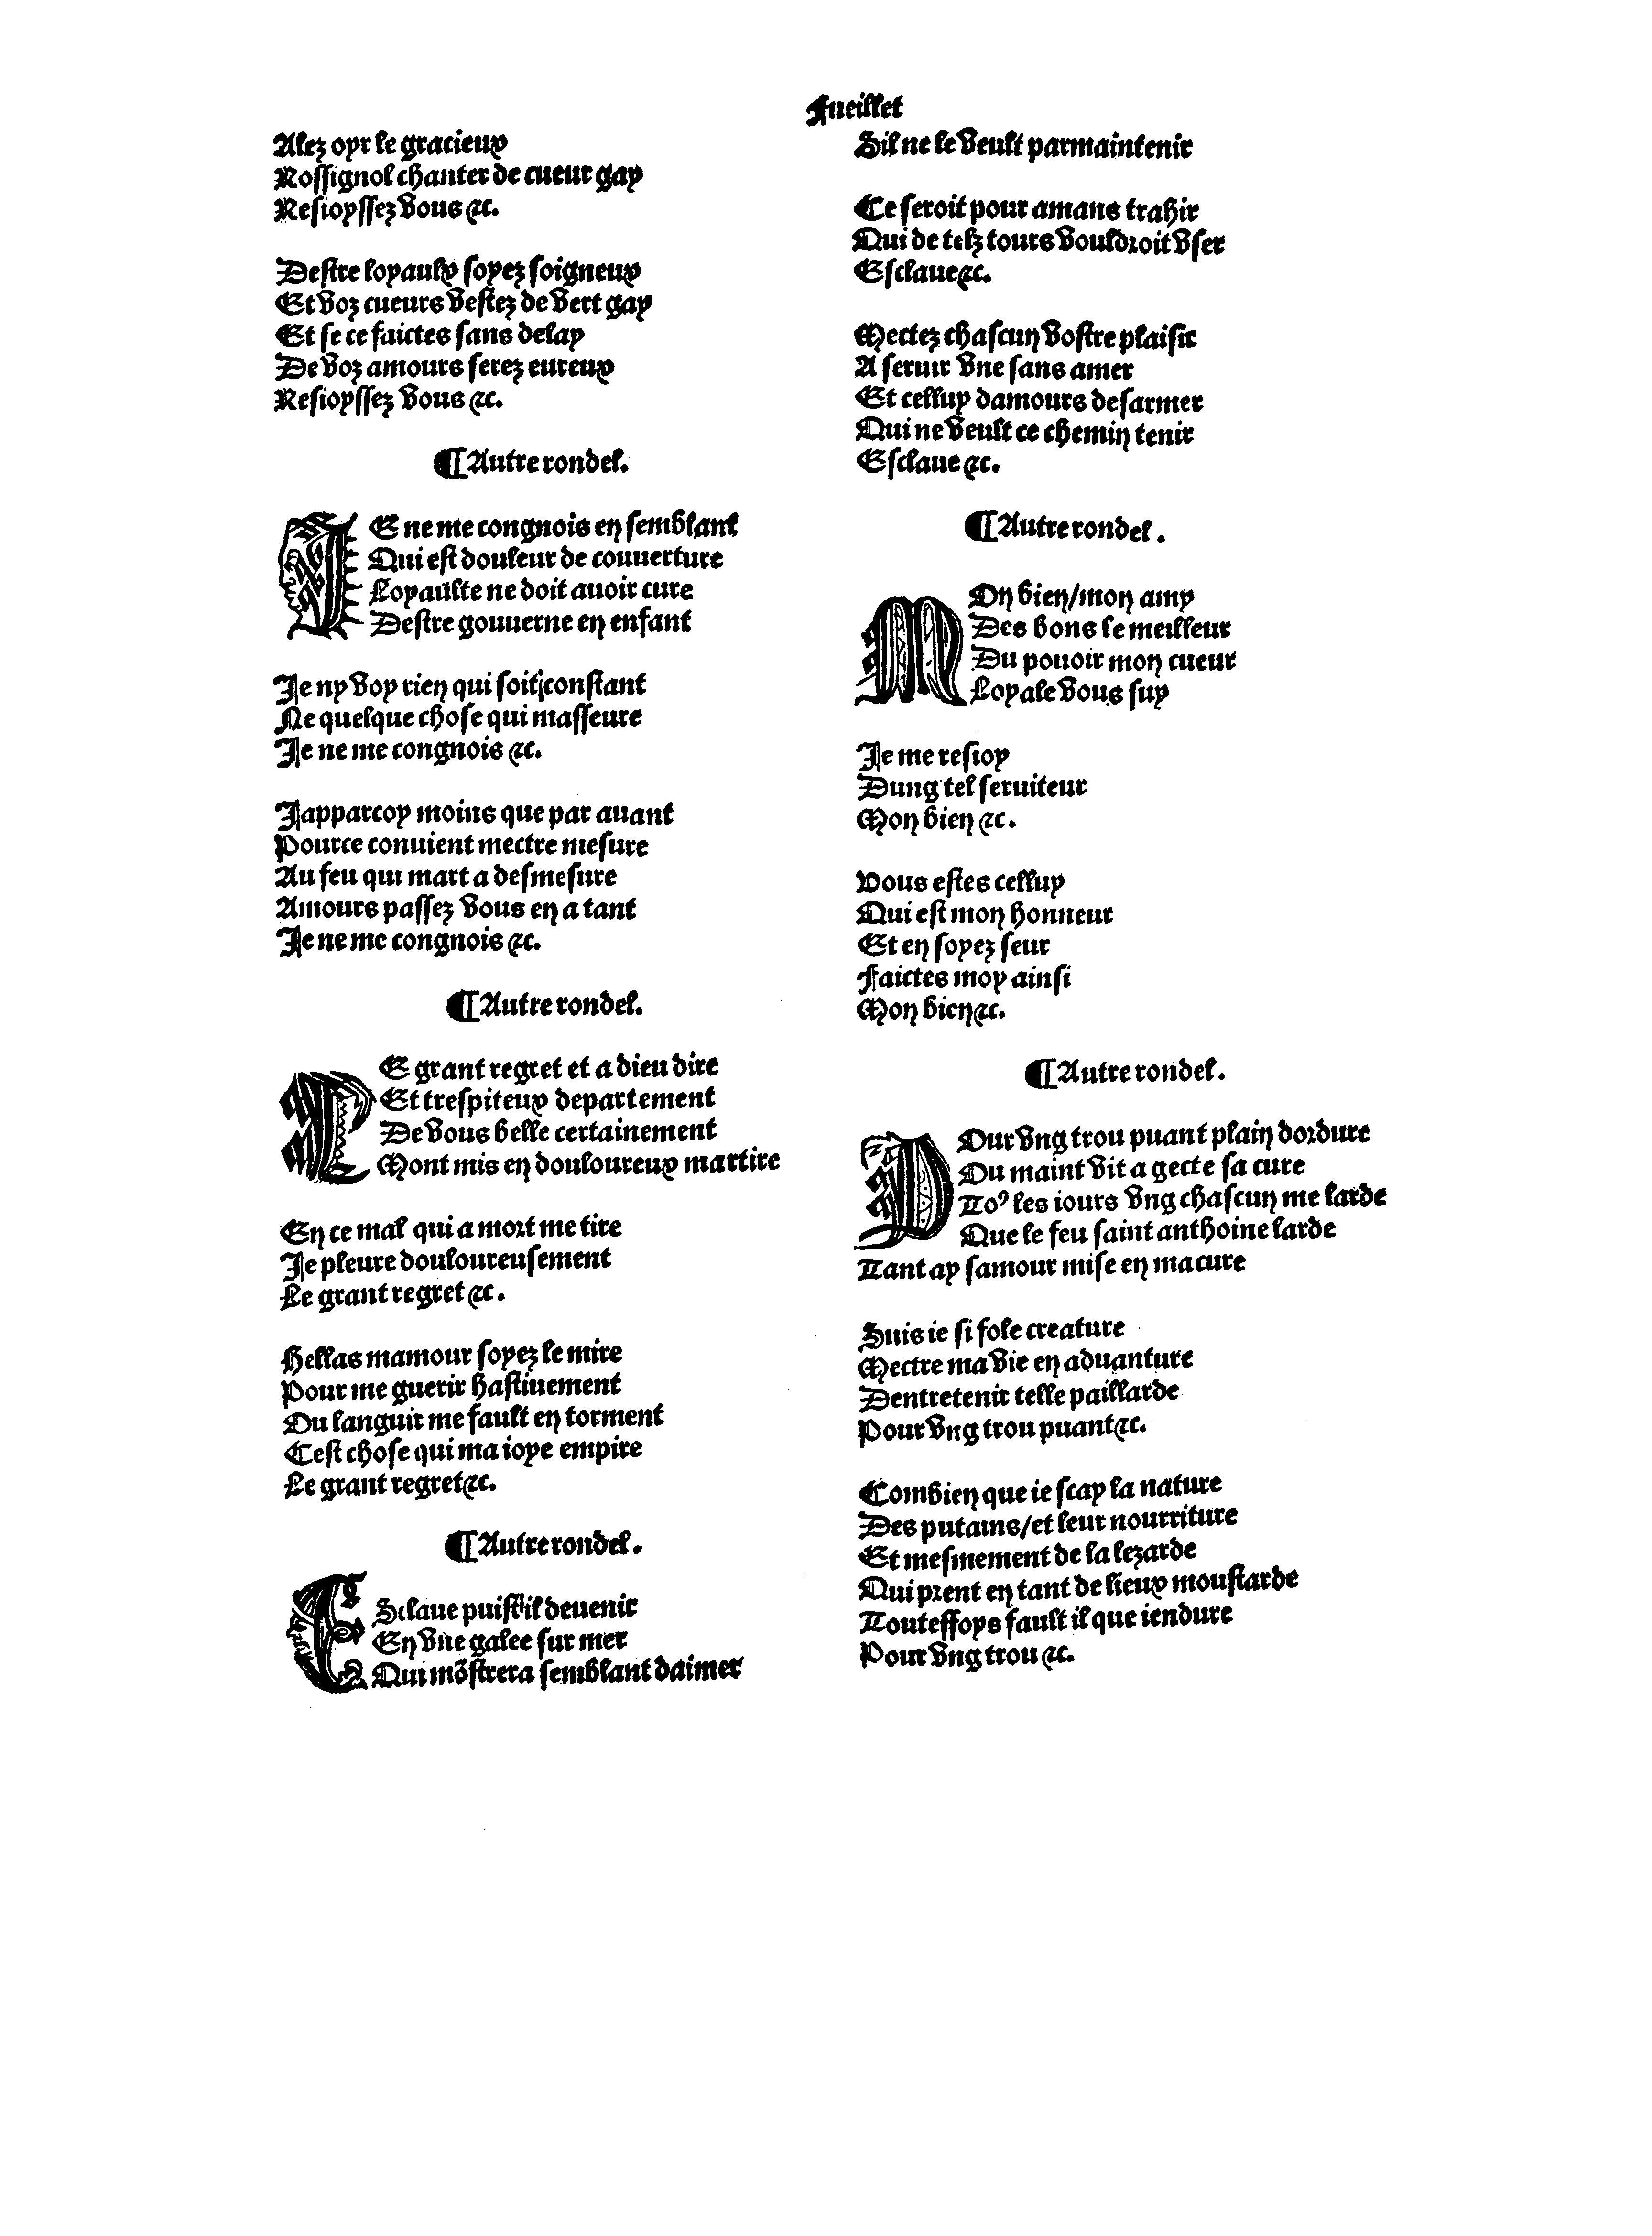 Fueillet
Alez oyr le gracieux
Rossignol chanter de cueur gay
Resioyssez vous &c.
Destre loyaulx soyez soigneux
Et voz cueurs vestez de vert gay
Et se ce faictes sans delay
De voz amours serez eureux
Resioyssez vous &c.
¶Autre rondel.
IE ne me congnois en semblant
Qui est douleur de couuerture
Loyaulte ne doit auoir cure
Destre gouuerne en enfant
Je ny voy rien qui soit constant
Ne quelque chose qui masseure
Je ne me congnois &c.
Japparcoy moins que par auant
Pource conuient mectre mesure
Au feu qui mart a desmesure
Amours passez vous en a tant
Je ne me congnois &c.
¶Autre rondel.
LE grant regret et a dieu dire
Et trespiteux departement
De vous belle certainement
Mont mis en douloureux martire
En ce mal qui a mort me tire
Je pleure douloureusement
Le grant regret &c.
Hellas mamour soyez le mire
Pour me guerir hastiuement
Ou languir me fault en torment
Cest chose qui ma ioye empire
Le grant regret &c.
¶Autre rondel.
ESclaue puist il deuenir
En vne galee sur mer
Qui mõstrera semblant daimer
Sil ne le veult parmaintenir
Ce seroit pour amans trahir
Qui de telz tours vouldroit vser
Esclaue &c.
Mectez chascun vostre plaisir
A seruir vne sans amer
Et celluy damours desarmer
Qui ne veult ce chemin tenir
Esclaue &c.
¶Autre rondel.
MOn bien/mon amy
Des bons le meilleur
Du pouoir mon cueur
Loyale vous suy
Je me resioy
Dung tel seruiteur
Mon bien &c.
Vous estes celluy
Qui est mon honneur
Et en soyez seur
Faictes moy ainsi
Mon bien &c.
¶Autre rondel.
POur vng trou puant plain dordure
Ou maint vit a gecte sa cure
Toꝰ les iours vng chascun me larde
Que le feu saint anthoine larde
Tant ay samour mise en macure
Suis ie si fole creature
Mectre ma vie en aduanture
Dentretenir telle paillarde
Pour vng trou puant &c.
Combien que ie scay la nature
Des putains/et leur nourriture
Et mesmement de la lezarde
Qui prent en tant de lieux moustarde
Touteffoys fault il que iendure
Pour vng trou &c.